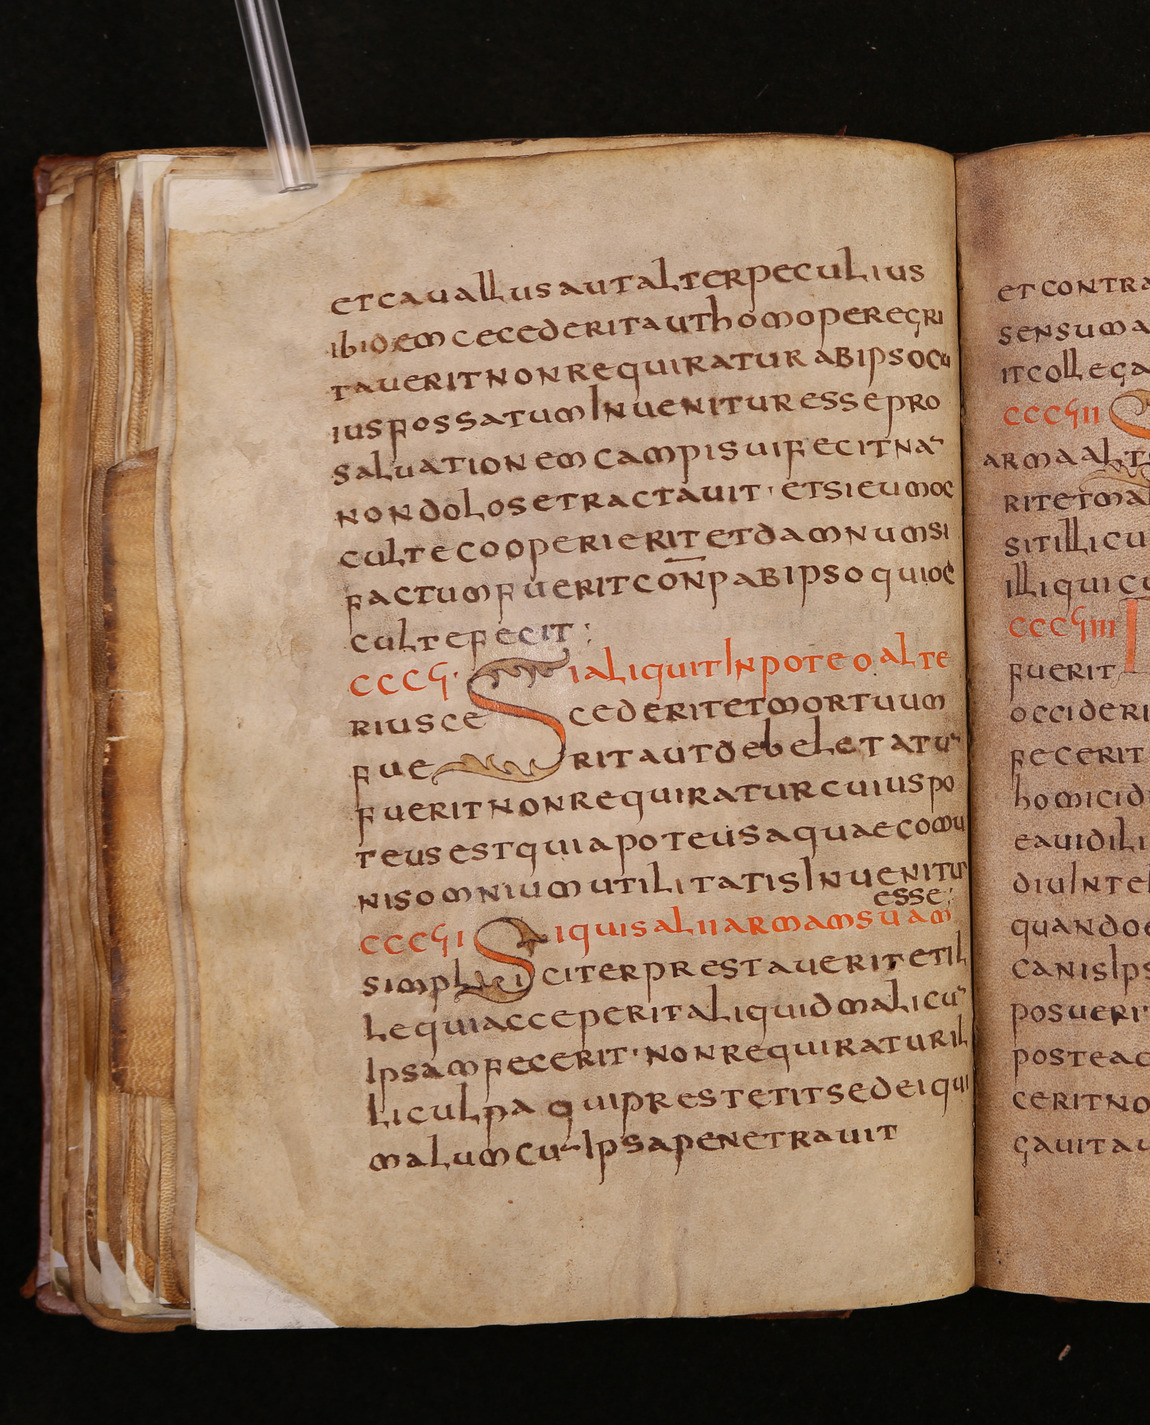 et cauallus aut alter peculius
ibidem cecederit aut homo peregri
tauerit non requiratur ab ipso cu
ius fossatum Inuenitur esse pro
saluationem campi sui fecit na᷃
non dolose tractauit · et si eum oc
culte cooperierit et damnum si
factum fuerit con̅p ab ipso qui oc
culte fecit :
CCCGͥ · Si aliquit In poteo alte
rius ce cederit et mortuum
fue rit aut debeletatu᷃
fuerit non requiratur cuius po
teus est quia poteus aquae comu
nis omnium utilitatis Inuenitur
esse ;
CCCGI Si quis alii armam suam
simpli citer prestauerit et il
le qui acceperit aliquid mali cu᷃
Ipsam fecerit · non requiratur il
li culpa qui prestetit sed ei qui
malum cu᷃ Ipsa penetrauit
et contra
sensum a
it collega
CCCGII
arma alt
rit et ma
sit illi cu
illi qui cu
CCCGIII
fuerit
occideri
fecerit
homicid
ea uidili
diu Inte
quando
canis Ips
posueri
postea c
cerit no
gauit au